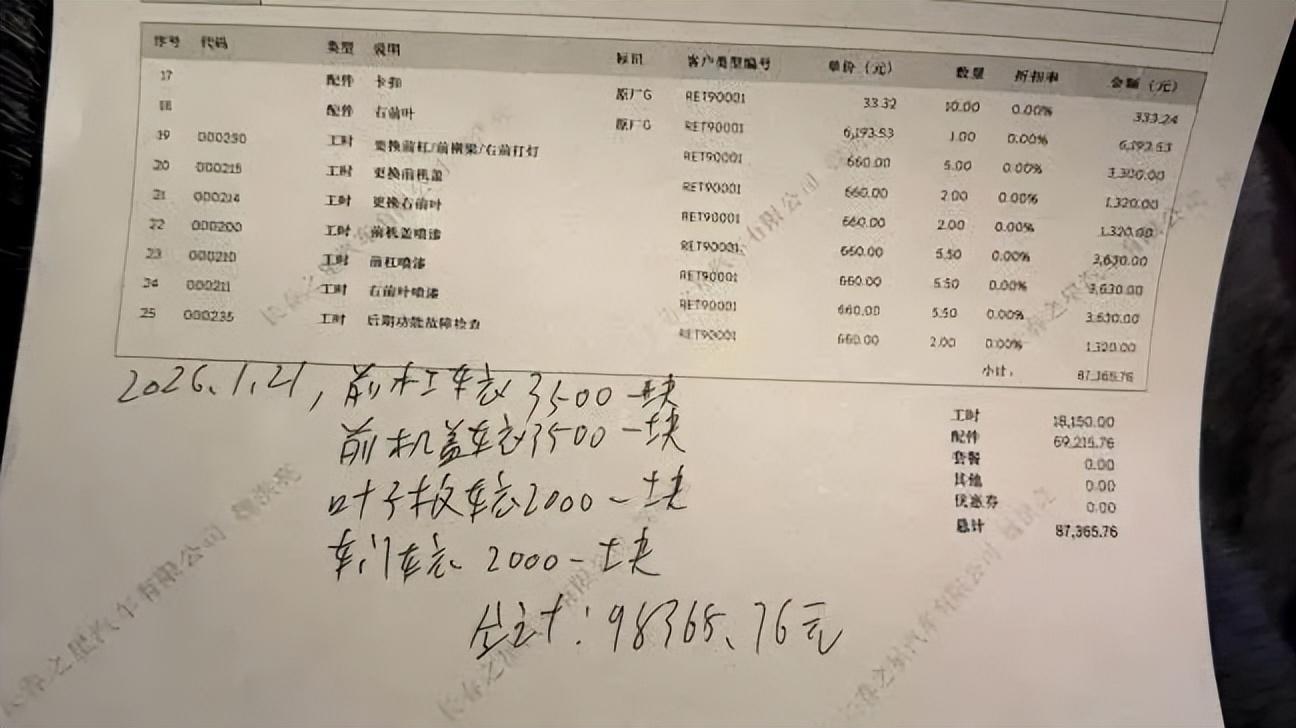 序号 代码 类型 说明 标识 客户类型编号 单价（元） 数量 折扣率 金额（元）
17 配件 卡扣 原厂G RET90001 33.32 10.00 0.00% 333.24
18 配件 右前叶 原厂G RET90001 6,193.53 1.00 0.00% 6,193.53
19 000230 工时 更换前杠/前横梁/右前灯 RET90001 660.00 5.00 0.00% 3,300.00
20 000215 工时 更换前机盖 RET90001 660.00 2.00 0.00% 1,320.00
21 000214 工时 更换右前叶 RET90001 660.00 2.00 0.00% 1,320.00
22 000200 工时 前机盖喷漆 RET90001 660.00 5.50 0.00% 3,630.00
23 000210 工时 前杠喷漆 RET90001 660.00 5.50 0.00% 3,630.00
24 000211 工时 右前叶喷漆 RET90001 660.00 5.50 0.00% 3,630.00
25 000235 工时 后期功能故障检查 RET90001 660.00 2.00 0.00% 1,320.00
小计： 87,365.76
工时 18,150.00
配件 69,215.76
套餐 0.00
其他 0.00
优惠券 0.00
总计 87,365.76
2026.1.21, 前杠车衣3500一块
前机盖车衣3500一块
叶子板车衣2000一块
车门车衣 2000一块
总计：98365.76元
长春之星汽车有限公司